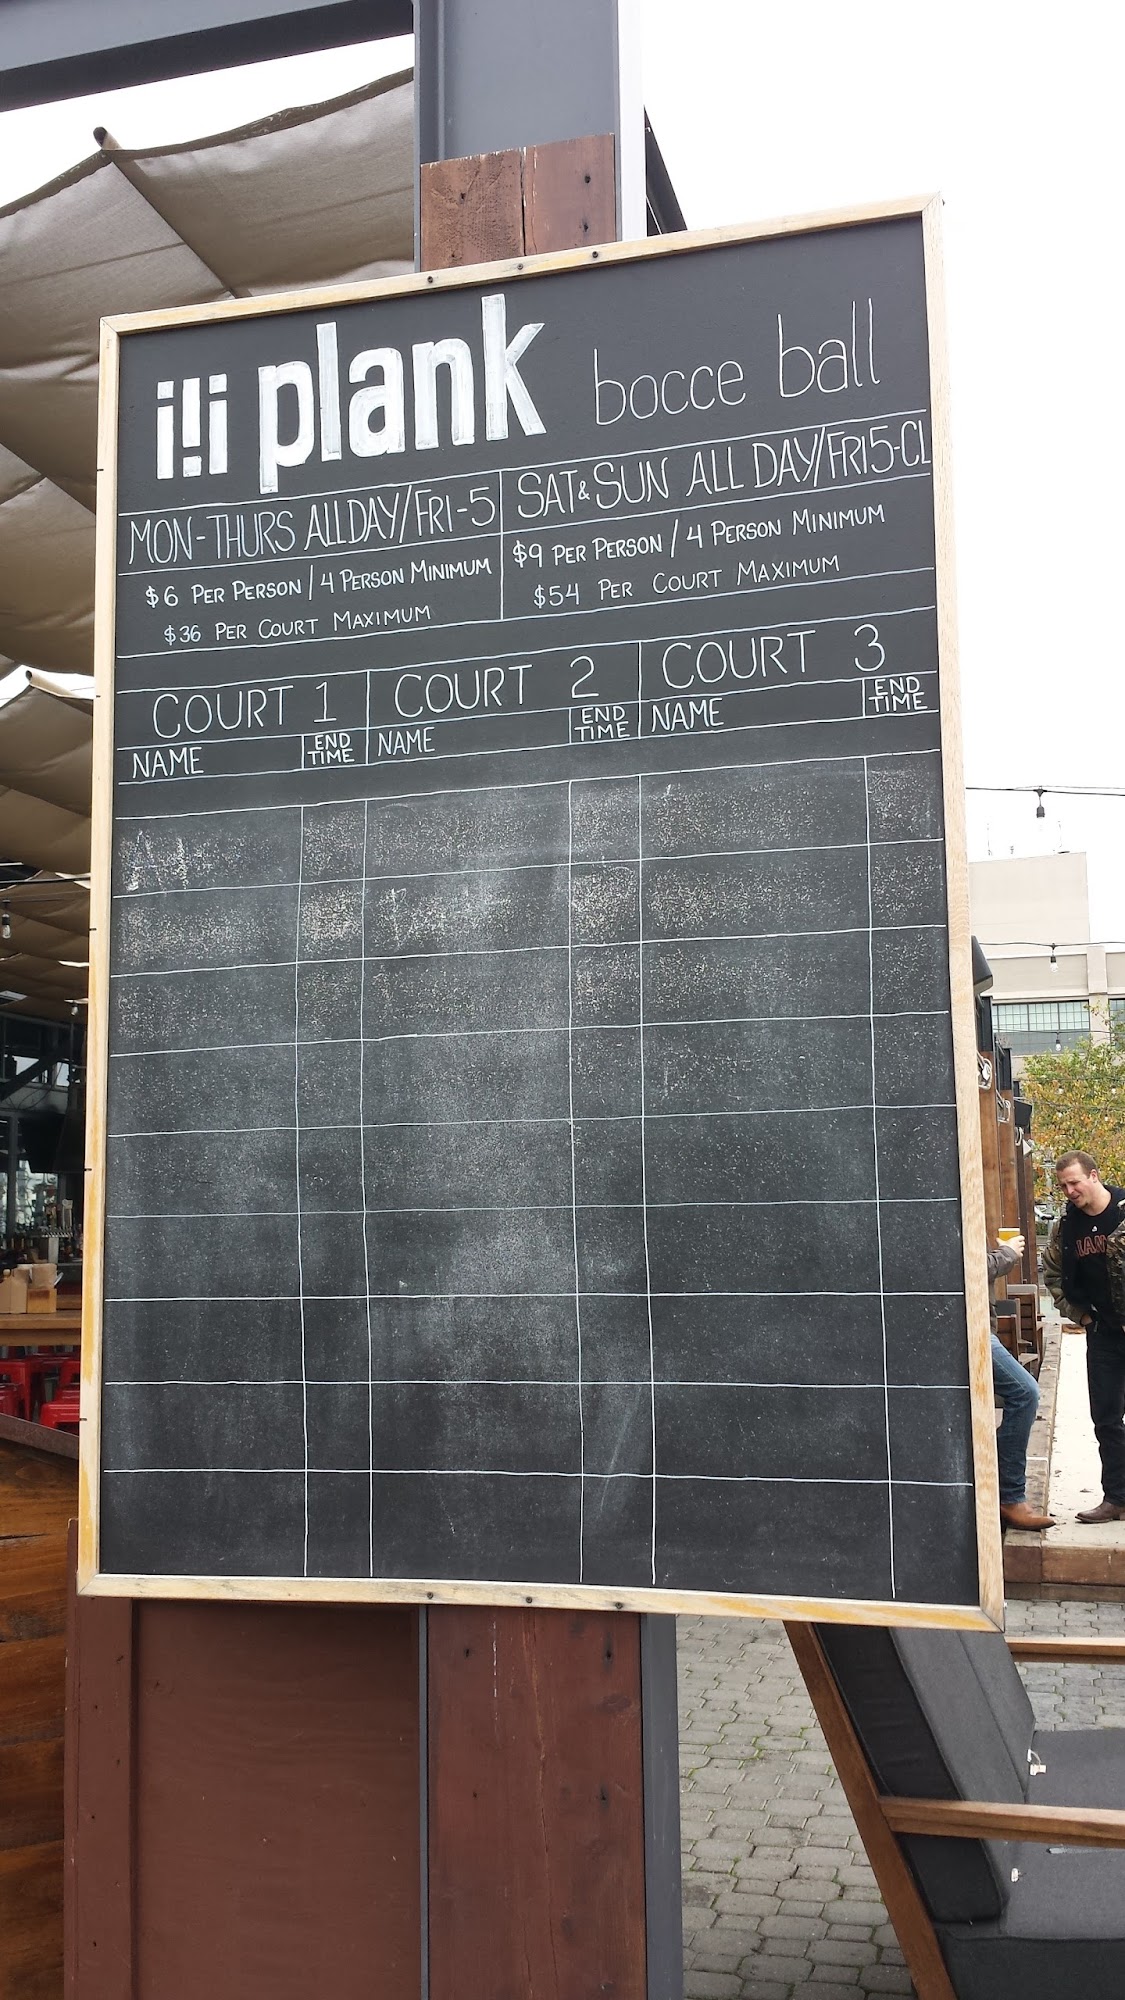 plank bocce ball
MON-THURS ALL DAY/FRI-5
$6 PER PERSON / 4 PERSON MINIMUM
$36 PER COURT MAXIMUM
SAT & SUN ALL DAY/FRI 5-CL
$9 PER PERSON / 4 PERSON MINIMUM
$54 PER COURT MAXIMUM
COURT 1 COURT 2 COURT 3
NAME END TIME NAME END TIME NAME END TIME